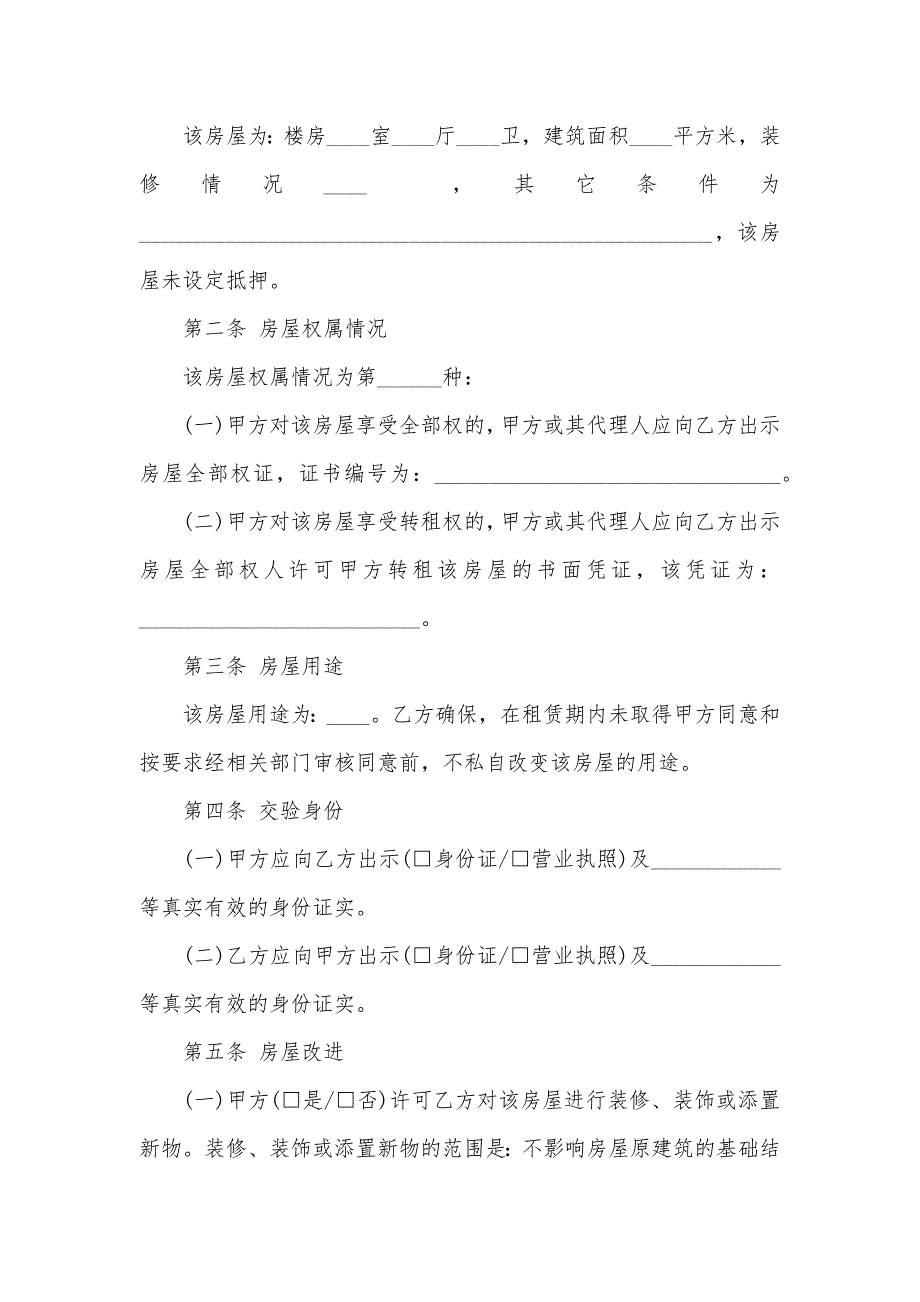 该房屋为：楼房____室____厅____卫，建筑面积____平方米，装
修情况____，其它条件为
_____________________________________________________，该房
屋未设定抵押。
第二条 房屋权属情况
该房屋权属情况为第______种：
(一)甲方对该房屋享受全部权的，甲方或其代理人应向乙方出示
房屋全部权证，证书编号为：________________________________。
(二)甲方对该房屋享受转租权的，甲方或其代理人应向乙方出示
房屋全部权人许可甲方转租该房屋的书面凭证，该凭证为：
__________________________。
第三条 房屋用途
该房屋用途为：____。乙方确保，在租赁期内未取得甲方同意和
按要求经相关部门审核同意前，不私自改变该房屋的用途。
第四条 交验身份
(一)甲方应向乙方出示(□身份证/□营业执照)及____________
等真实有效的身份证实。
(二)乙方应向甲方出示(□身份证/□营业执照)及____________
等真实有效的身份证实。
第五条 房屋改进
(一)甲方(□是/□否)许可乙方对该房屋进行装修、装饰或添置
新物。装修、装饰或添置新物的范围是：不影响房屋原建筑的基础结